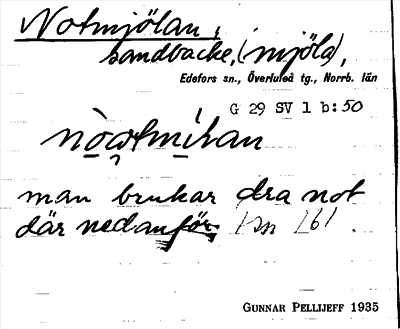 Notmjölan,
sandbacke, (mjöla),
Edefors sn., Överluleå tg., Norrb. län
G 29 SV 1 b:50
man brukar dra not
där nedanför.
GUNNAR PELLIJEFF 1935